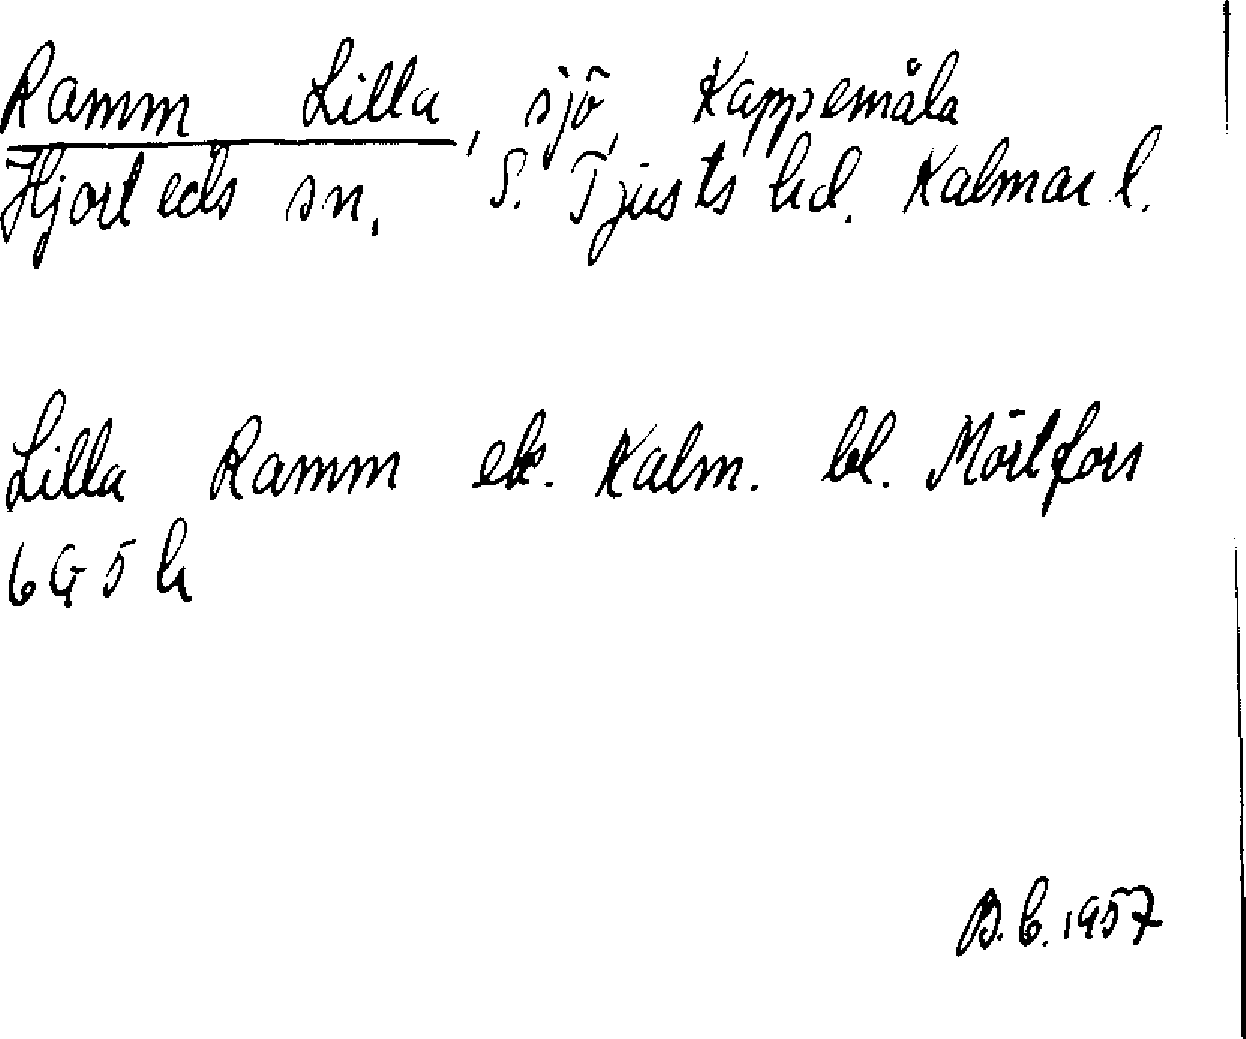 Ramm Lilla, sjö, Kappemåla
Hjorteds sn. S. Tjusts hd. Kalmar l.
Lilla Ramm ek. Kalm. bl. Mörtfors
6G5h
B.C. 1957